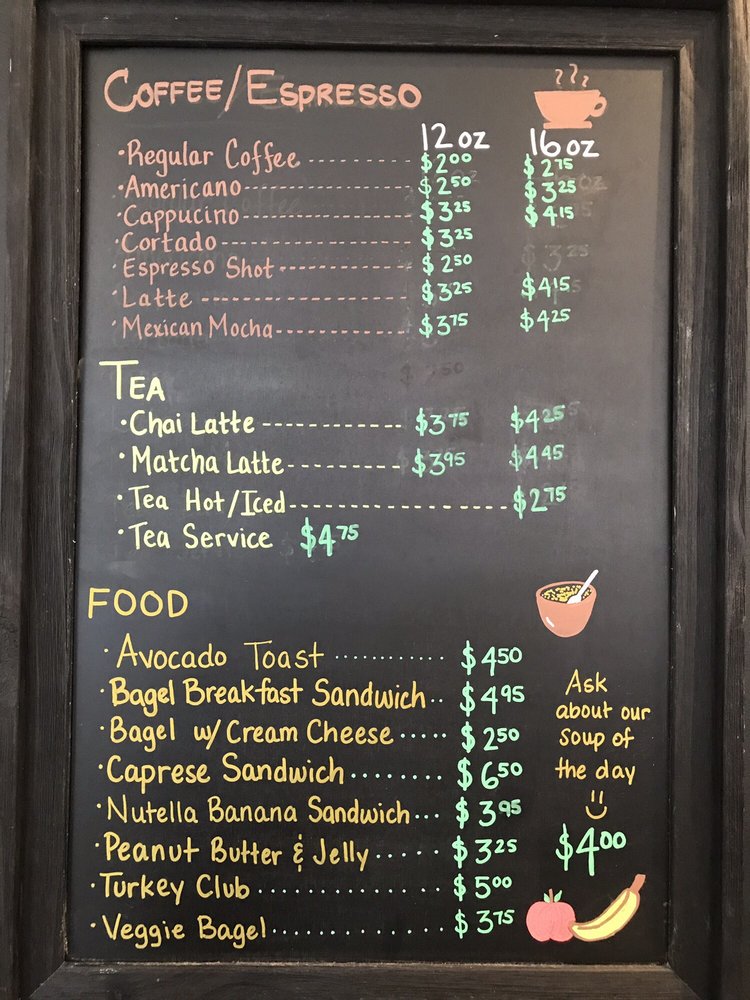 COFFEE/ESPRESSO
12 oz 16 oz
·Regular Coffee ------------ $2.00 $2.75
·Americano ------------ $2.50 $3.25
·Cappucino ------------ $3.25 $4.15
·Cortado ------------ $3.25
·Espresso Shot ------------ $2.50
·Latte ------------ $3.25 $4.15
·Mexican Mocha ------------ $3.75 $4.25
TEA
·Chai Latte ------------ $3.75 $4.25
·Matcha Latte --------- $3.95 $4.45
·Tea Hot/Iced ------------------ $2.75
·Tea Service $4.75
FOOD
·Avocado Toast ........... $4.50
·Bagel Breakfast Sandwich.. $4.95
·Bagel w/ Cream Cheese ..... $2.50
·Caprese Sandwich ........ $6.50
·Nutella Banana Sandwich... $3.95
·Peanut Butter & Jelly ..... $3.25
·Turkey Club ............. $5.00
·Veggie Bagel............. $3.75
Ask
about our
soup of
the day
$4.00